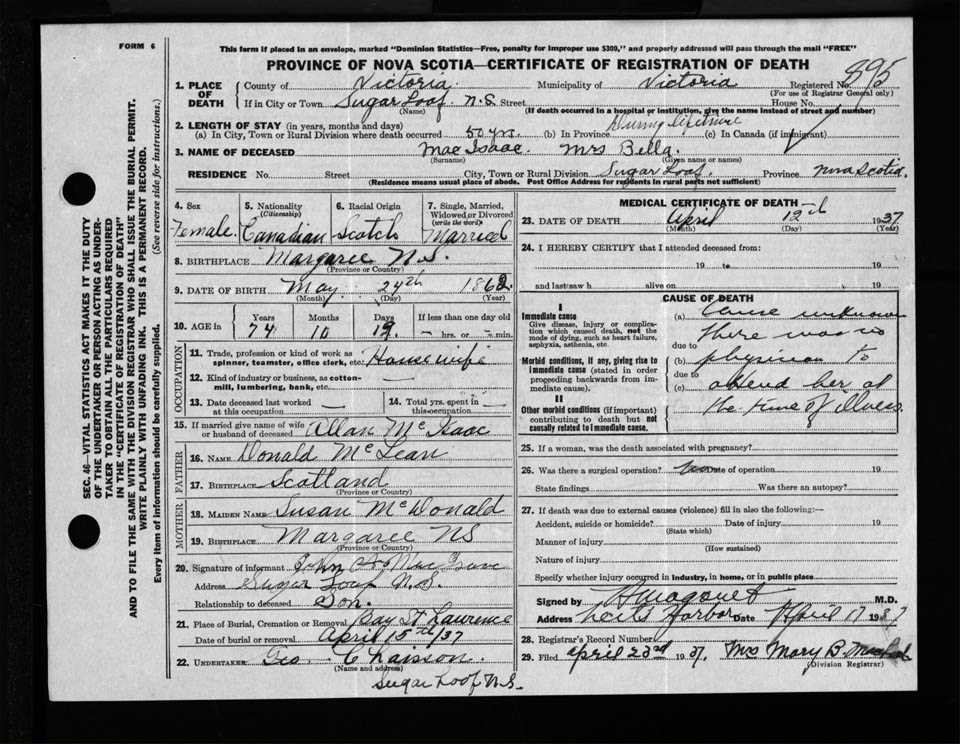 FORM 6
This form if placed in an envelope, marked "Dominion Statistics—Free, penalty for improper use $300," and properly addressed will pass through the mail "FREE"
PROVINCE OF NOVA SCOTIA—CERTIFICATE OF REGISTRATION OF DEATH
1. PLACE OF DEATH County of Victoria Municipality of Victoria Registered No. 895
(For use of Registrar General only)
If in City or Town Sugar Loaf N.S. Street House No.
(Name) (If death occurred in a hospital or institution, give the name instead of street and number)
2. LENGTH OF STAY (in years, months and days) During Lifetime
(a) In City, Town or Rural Division where death occurred 50 yrs. (b) In Province (c) In Canada (if immigrant)
3. NAME OF DECEASED Mac Isaac. Mrs Bella.
(Surname) (Given name or names)
RESIDENCE No. Street City, Town or Rural Division Sugar Loaf Province Nova Scotia.
(Residence means usual place of abode. Post Office Address for residents in rural parts not sufficient)
4. Sex
Female.
5. Nationality
(Citizenship)
Canadian
6. Racial Origin
Scotch
7. Single, Married, Widowed or Divorced
(write the word)
Married
8. BIRTHPLACE Margaree N.S.
(Province or Country)
9. DATE OF BIRTH May 24th 1862
(Month) (Day) (Year)
10. AGE in Years Months Days If less than one day old
74 10 19 — hrs. or — min.
OCCUPATION
11. Trade, profession or kind of work as spinner, teamster, office clerk, etc. Housewife
12. Kind of industry or business, as cotton-mill, lumbering, bank, etc. —
13. Date deceased last worked at this occupation —
14. Total yrs. spent in this occupation —
15. If married give name of wife or husband of deceased Allan McIsaac
FATHER
16. NAME Donald McLean
17. BIRTHPLACE Scotland
(Province or Country)
MOTHER
18. MAIDEN NAME Susan McDonald
19. BIRTHPLACE Margaree NS
(Province or Country)
20. Signature of informant John MacIsaac
Address Sugar Loaf N.S.
Relationship to deceased Son.
21. Place of Burial, Cremation or Removal Bay St Lawrence
Date of burial or removal April 15th/37
22. UNDERTAKER Geo. Chaisson.
(Name and address)
Sugar Loaf N.S.
MEDICAL CERTIFICATE OF DEATH
23. DATE OF DEATH April 12th 1937
(Month) (Day) (Year)
24. I HEREBY CERTIFY that I attended deceased from:
19 to 19
and last saw h alive on 19
CAUSE OF DEATH
I
Immediate cause
Give disease, injury or complication which caused death, not the mode of dying, such as heart failure, asphyxia, asthenia, etc.
Morbid conditions, if any, giving rise to immediate cause (stated in order proceeding backwards from immediate cause).
II
Other morbid conditions (if important) contributing to death but not causally related to immediate cause.
(a) Cause unknown
there was no
due to
(b) physician to
due to
(c) attend her at
the time of illness.
25. If a woman, was the death associated with pregnancy?
26. Was there a surgical operation? Date of operation 19
State findings Was there an autopsy?
27. If death was due to external causes (violence) fill in also the following:—
Accident, suicide or homicide? Date of injury 19
(State which)
Manner of injury
(How sustained)
Nature of injury
Specify whether injury occurred in industry, in home, or in public place
Signed by M.D.
Address Neils Harbor Date April 17 1937
28. Registrar's Record Number
29. Filed April 23rd 1937. Mrs Mary B.
(Division Registrar)
SEC. 46—VITAL STATISTICS ACT MAKES IT THE DUTY
OF THE UNDERTAKER OR PERSON ACTING AS UNDERTAKER TO OBTAIN ALL THE PARTICULARS REQUIRED
IN THE "CERTIFICATE OF REGISTRATION OF DEATH"
AND TO FILE THE SAME WITH THE DIVISION REGISTRAR WHO SHALL ISSUE THE BURIAL PERMIT.
WRITE PLAINLY WITH UNFADING INK. THIS IS A PERMANENT RECORD.
Every item of information should be carefully supplied. (See reverse side for instructions.)